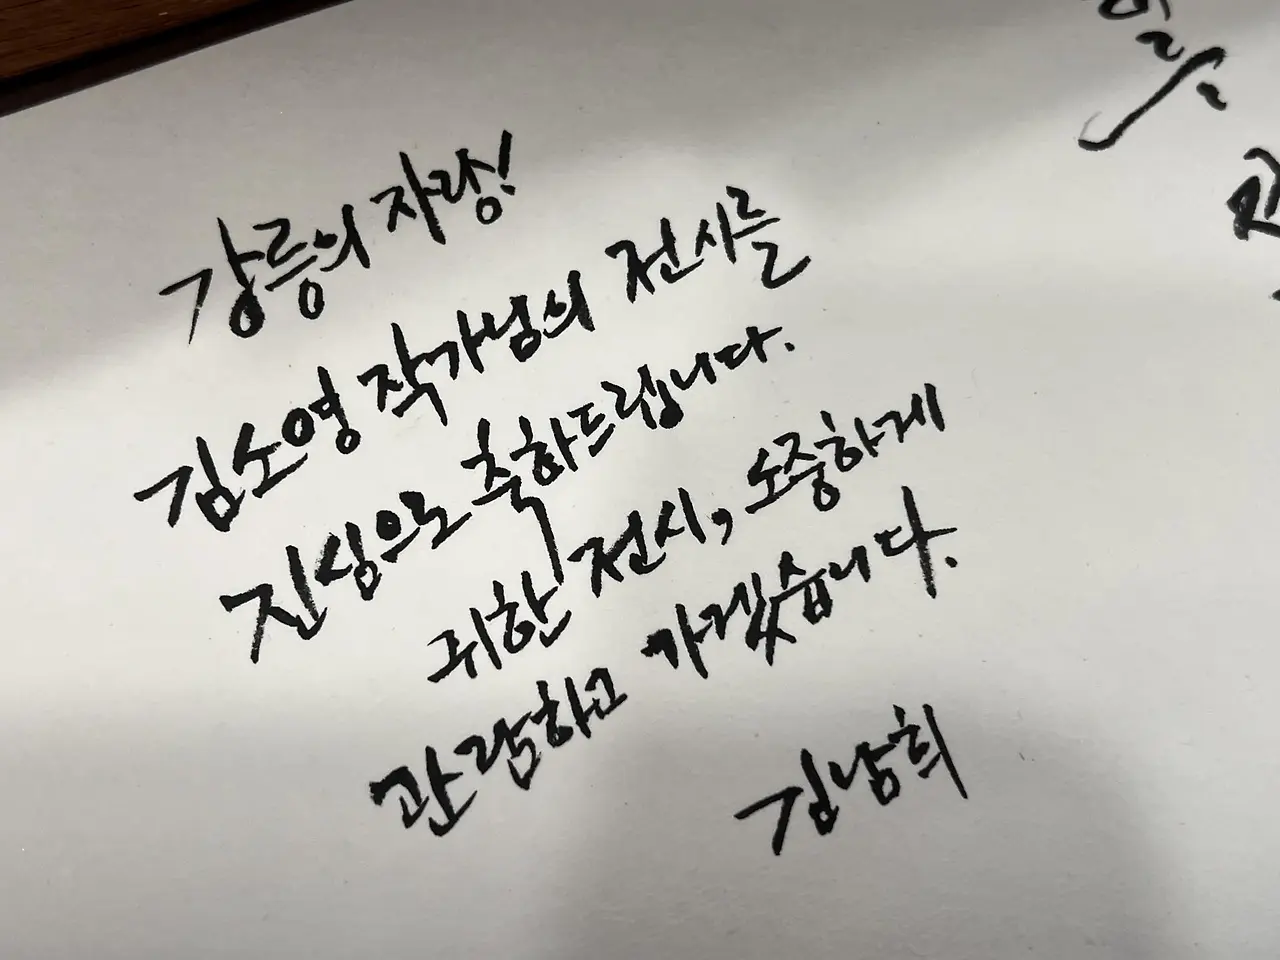 강릉의 자랑!
김소영 작가님의 전시를
진심으로 축하드립니다.
귀한 전시, 소중하게
관람하고 가겠습니다.
김남희